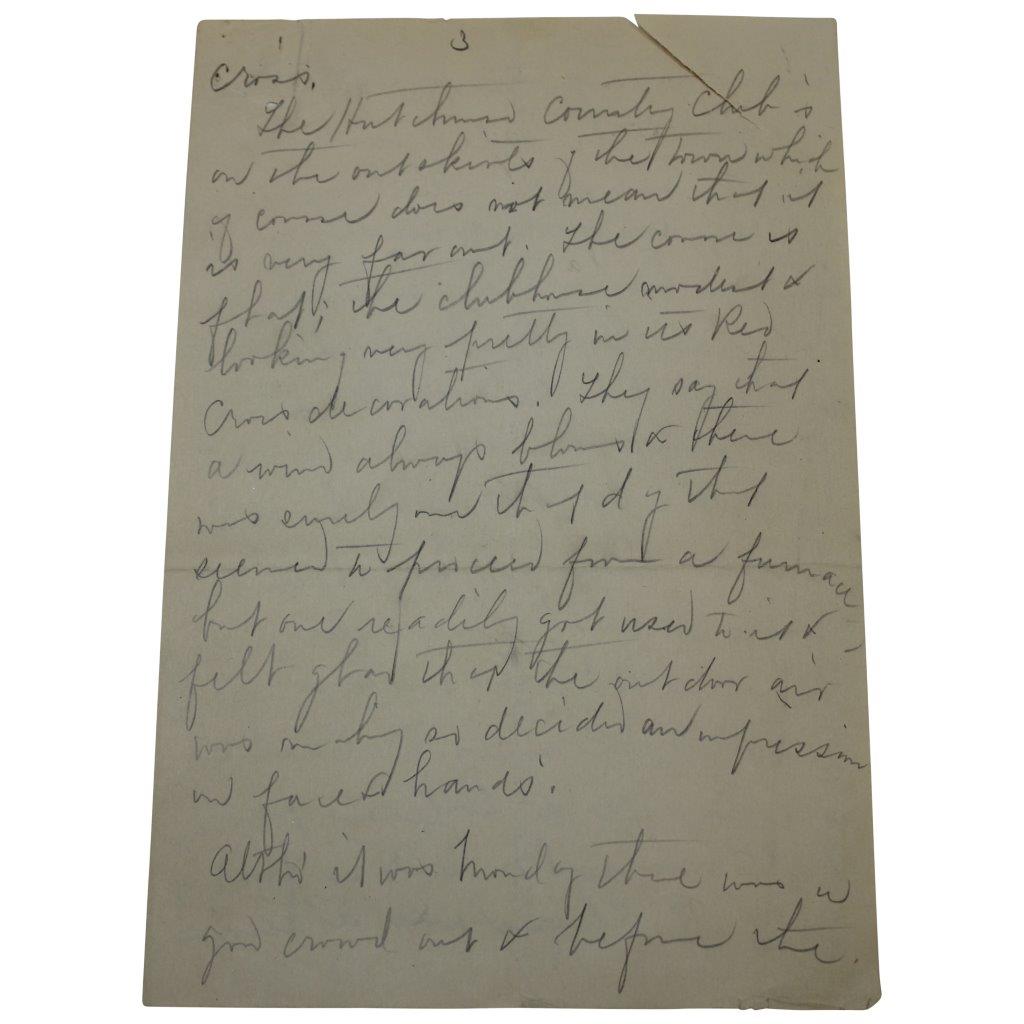 3
Cross.
The Hutchinson Country Club is
on the outskirts of the town which
of course does not mean that it
is very far out. The course is
flat; the clubhouse modest &
looking very pretty in its Red
Cross decorations. They say that
a wind always blows & there
was surely one that day that
seemed to proceed from a furnace
but one readily got used to it &
felt glad that the outdoor air
was making so decided an impression
on face & hands.
Altho' it was Monday there was a
good crowd out & before the